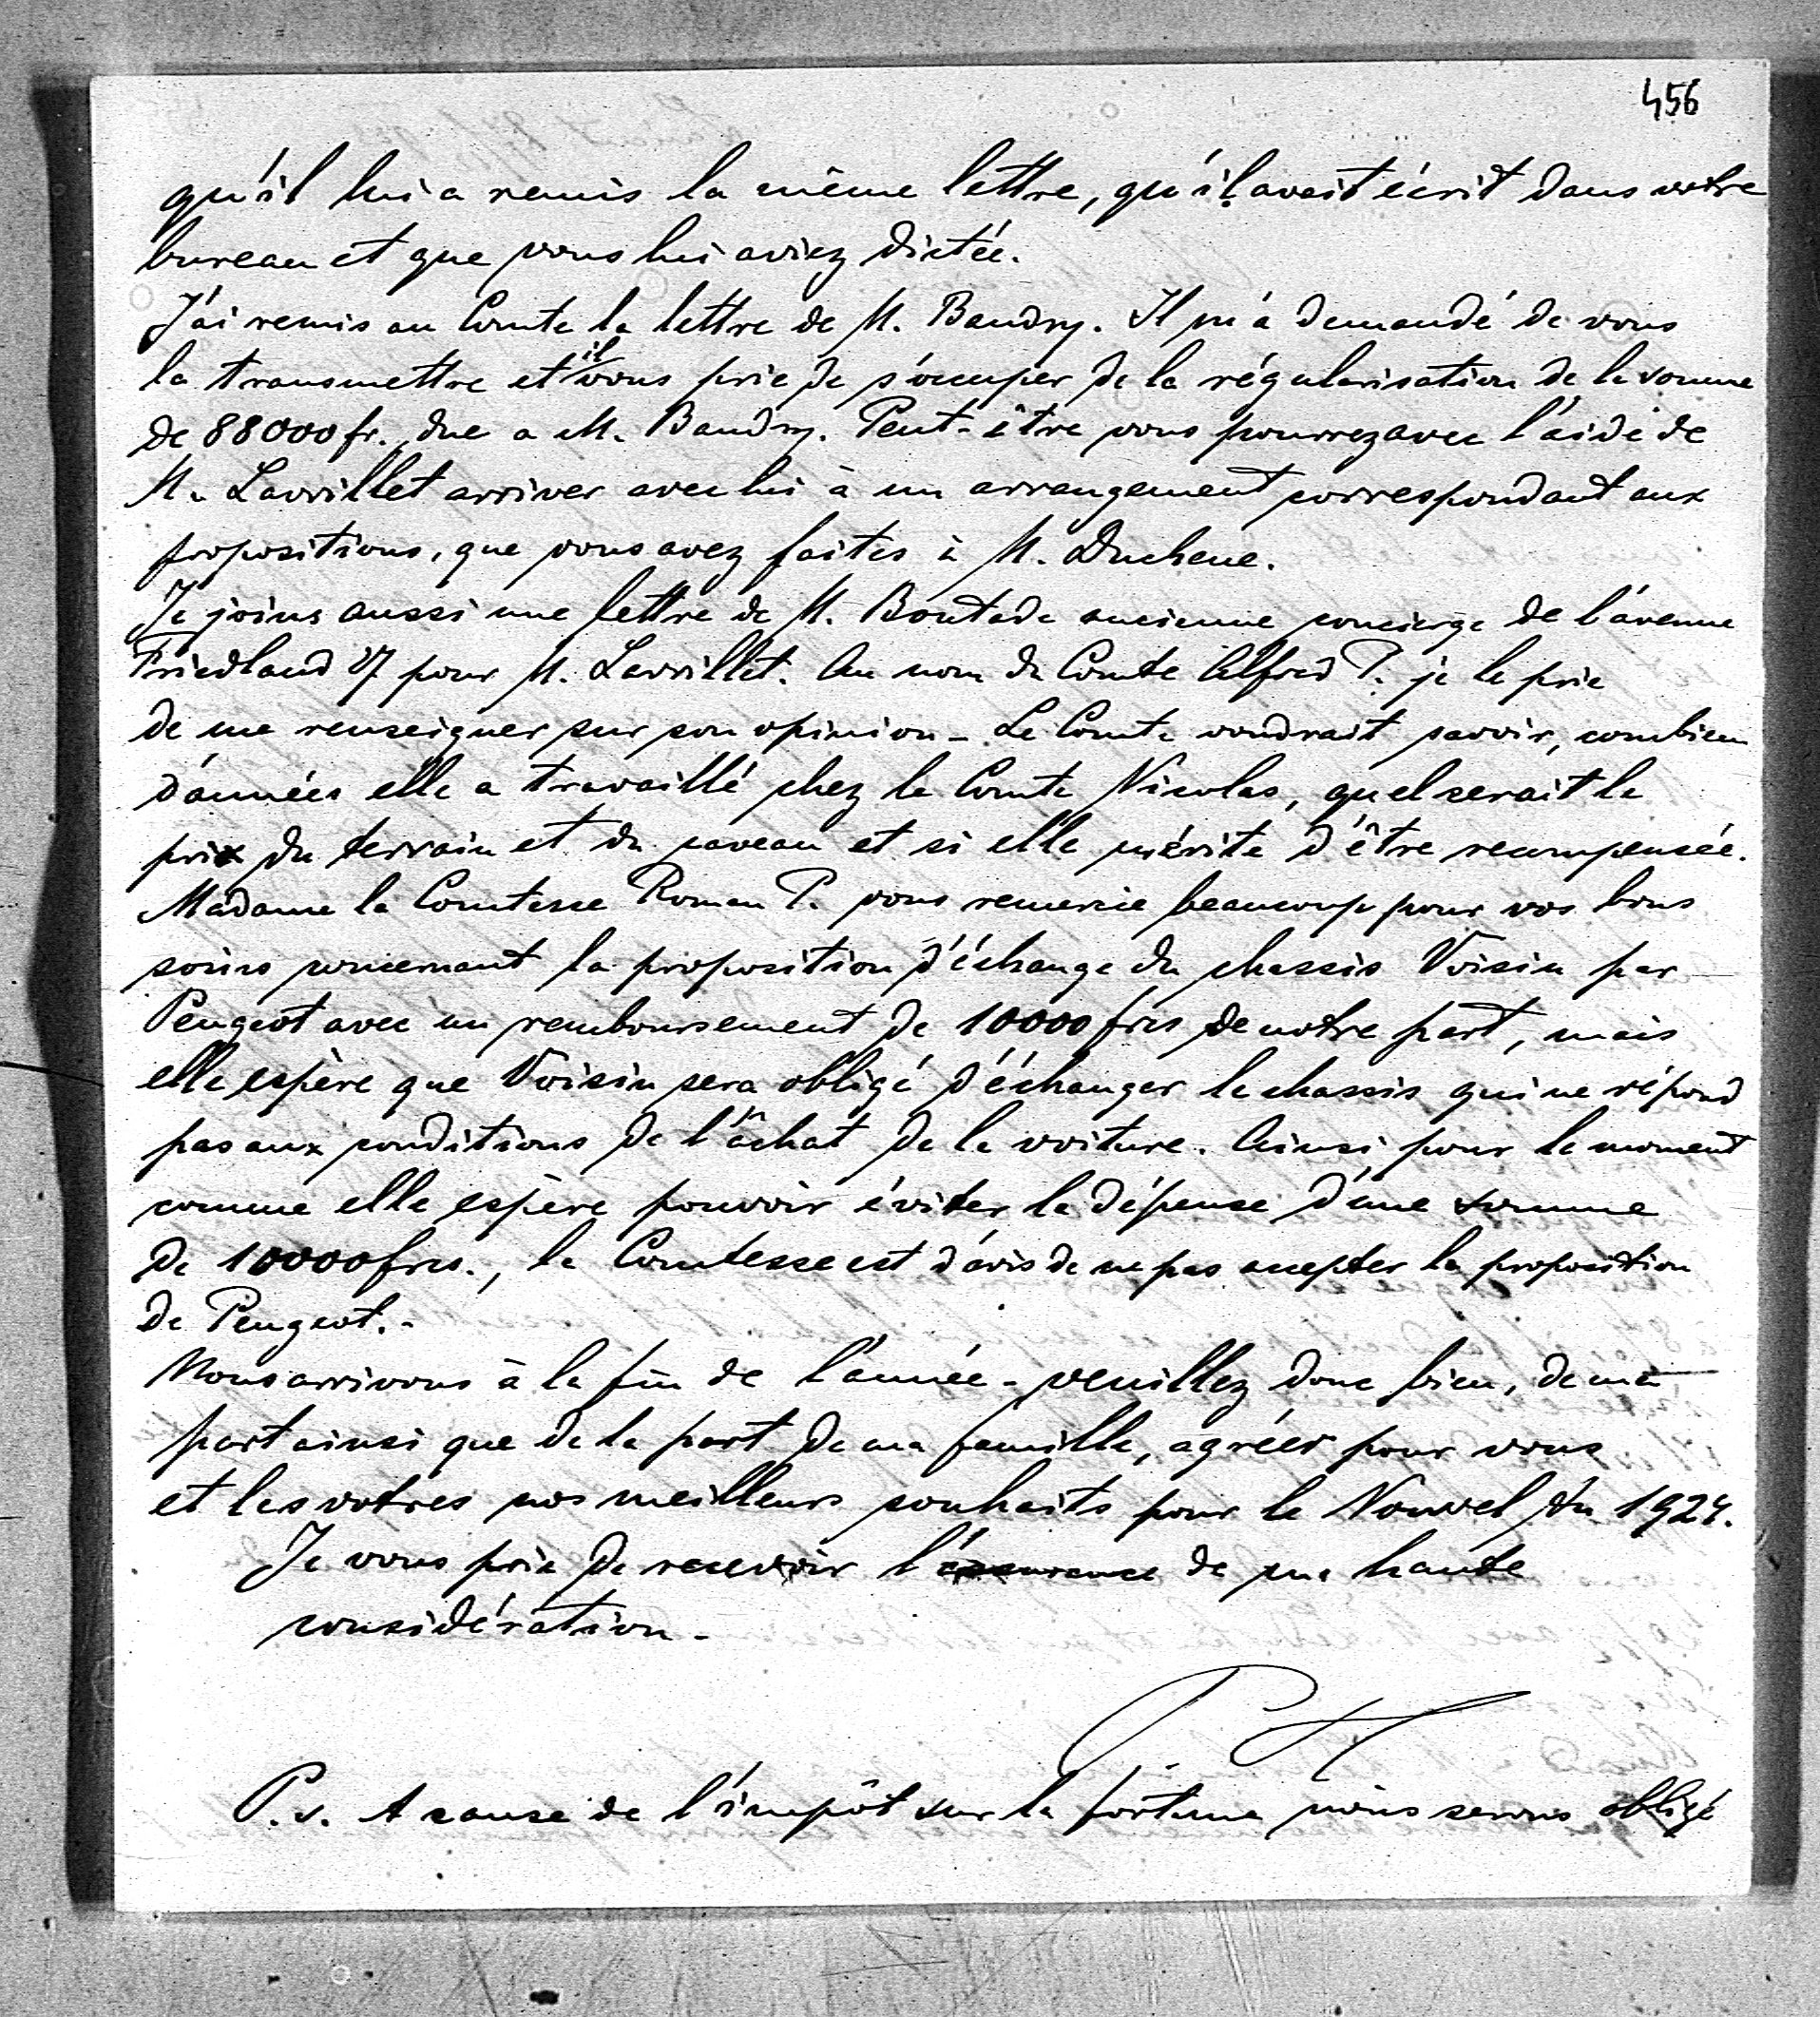 456
qu'il lui a remis la même lettre, qu'il avait écrit dans votre
bureau et que vous lui aviez dictée.
J'ai remis au Comte la lettre de M. Baudry. Il m'a demandé de vous
la transmettre et il vous prie de s'occuper de la régularisation de la somme
de 88000 fr. due a M. Baudry. Peut-être vous pourrez avec l'aide de
M. Lavvillet arriver avec lui à un arrangement correspondant aux
propositions, que vous avez faites à M. Duchene.
Je joins aussi une lettre de M. Boutade ancienne concierge de l'avenue
Friedland 27 pour M. Lavvillet. Au nom du Comte Alfred P. je le prie
de me renseigner sur son opinion - Le Comte voudrait savoir, combien
d'années elle a travaillé chez le Comte Nicolas, quel serait le
prix du terrain et du caveau et si elle mérite d'être recompensée.
Madame la Comtesse Roman P. vous remercie beaucoup pour vos bons
soins concernant la proposition d'échange du chassis Voisin par
Peugeot avec un remboursement de 10000 frcs de notre part, mais
elle espère que Voisin sera obligé d'échanger le chassis qui ne répond
pas aux conditions de l'achat de la voiture. Ainsi pour le moment
comme elle espère pouvoir éviter la dépense d'une somme
de 10000 frcs., la Comtesse est d'avis de ne pas accepter la proposition
de Peugeot.-
Nous arrivons à la fin de l'année - veuillez donc bien, de ma
part ainsi que de la part de ma famille, agréer pour vous
et les votres nos meilleurs souhaits pour le Nouvel An 1924.
Je vous prie de recevoir l'assurance de ma haute
considération -
P.s. A cause de l'impôt sur la fortune nous serons obligé